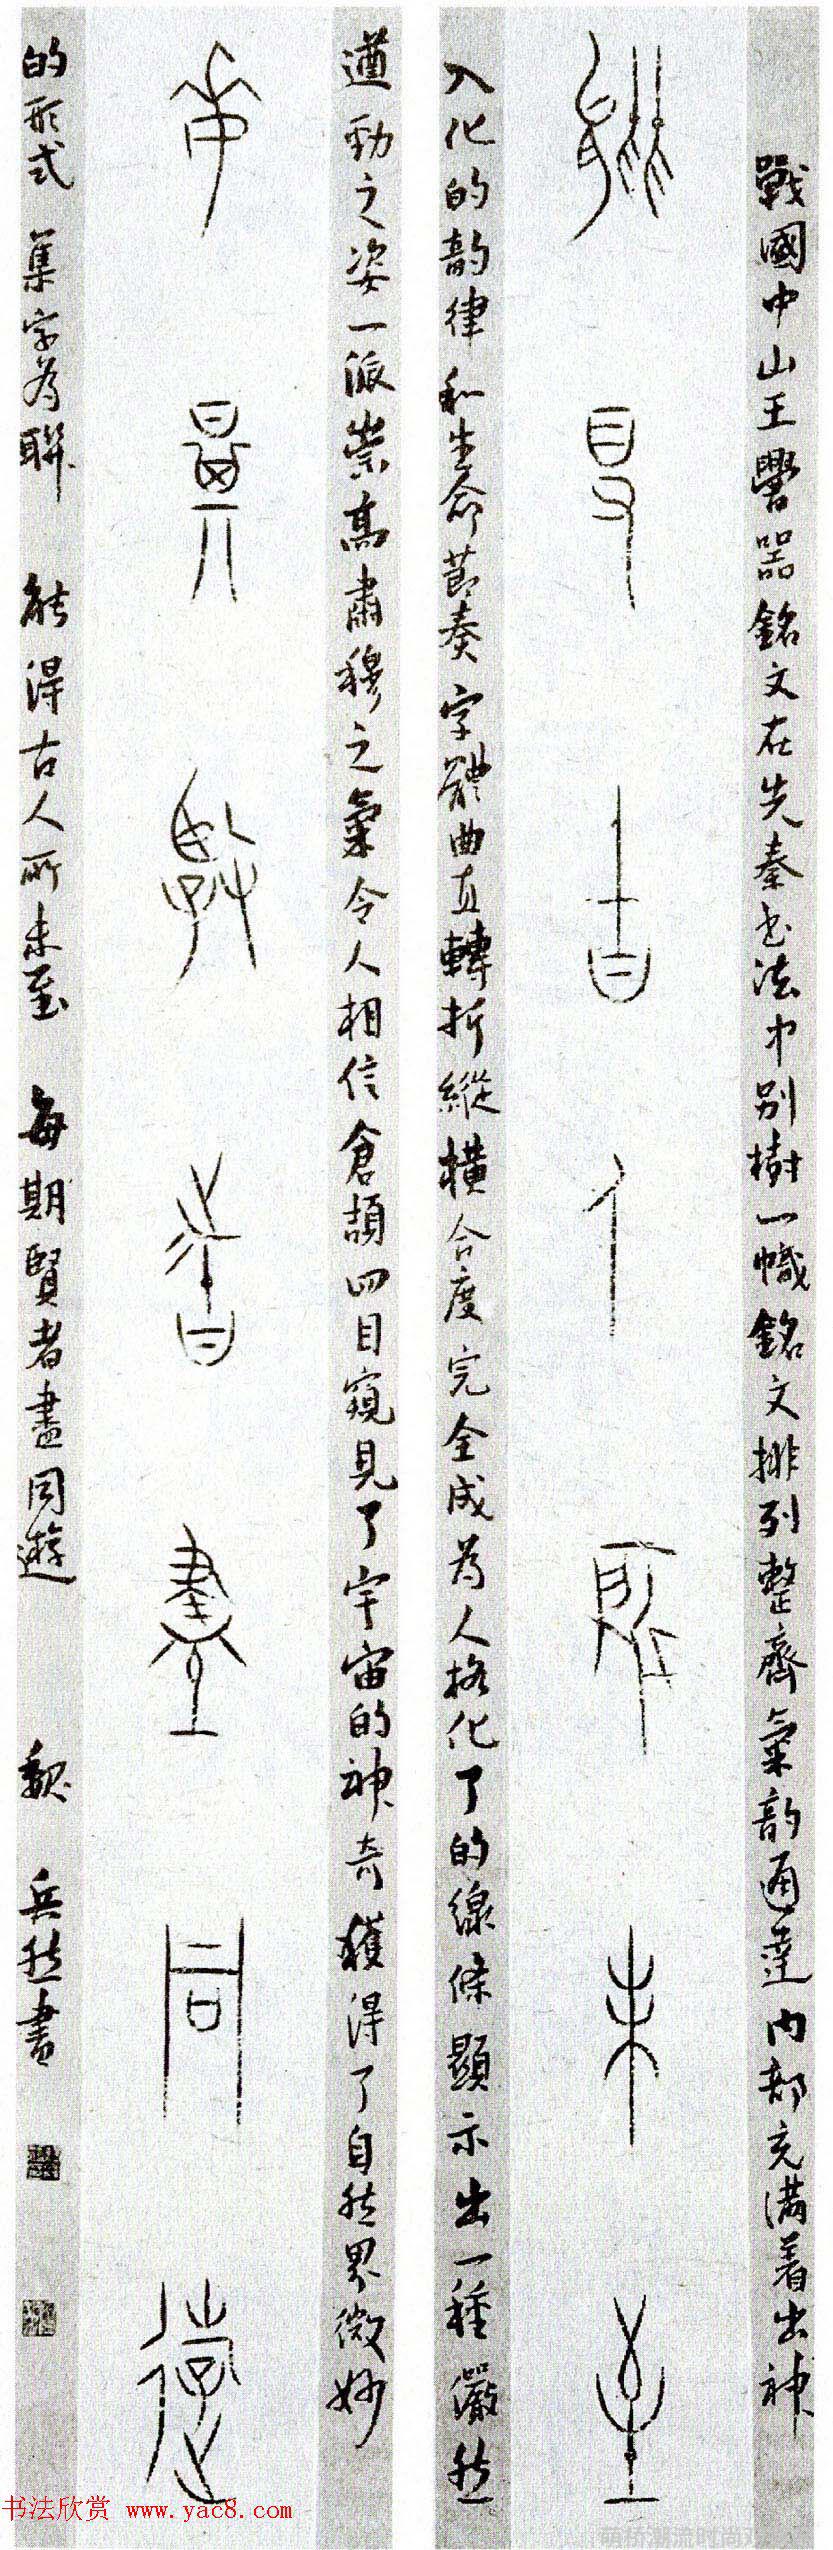 戰國中山王嚳器銘文在先秦书法中别樹一幟銘文排列整齊氣韵通達内部充满着出神
能得古人所未至
入化的韵律和生命節奏字體曲直轉折縱橫合度完全成为人格化了的線條顯示出一種嚴然
遒勁之姿一派崇高肅穆之氣令人相信倉頡四目窺見了宇宙的神奇獲得了自然界微妙
每期賢者盡同遊
的形式集字为聯能得古人所未至每期賢者盡同遊魏兵然書
书法欣赏 www.yac8.com